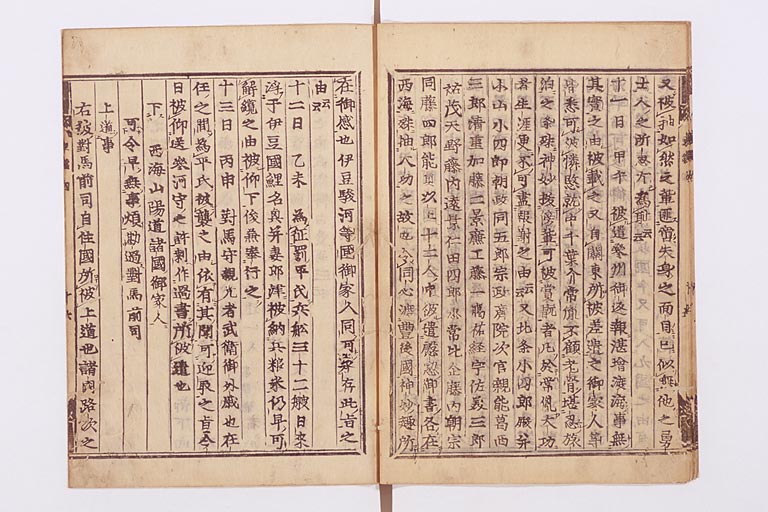 又被抽如然之輩匪啻失身之而自已似無他之勇
士人之所思尤為耻云云
十一日 甲午 被遣參州御返報湛增渡海事無
其實之由被載之又自關東所被差遣之御家人等
皆悉可被憐愍就中千葉介常胤不顧老骨堪忍旅
泊之条殊神妙拔傍輩可被賞翫者凡於常胤大功
者生涯更不可盡報謝之由云云又北条小四郎殿并
小山小四郎朝政同五郎宗政齋院次官親能葛西
三郎清重加藤二景廉工藤一臈祐経宇佐美三郎
祐茂天野藤内遠景仁田四郎忠常比企藤内朝宗
同藤四郎能員以上十二人中被遣慇懃御書各在
西海殊抽大功之故也令同心渡豊後國神妙趣所
在御感也伊豆駿河等國御家人同可存此旨之
由云云
十二日 乙未 為征罰平氏兵舩三十二艘日來
浮于伊豆國鯉名奥并妻郎津被納兵粮米仍早可
解纜之由被仰下俊兼奉行之
十三日 丙申 對馬守親光者武衛御外戚也在
任之間為平氏被襲之由依有其聞可迎取之旨今
日被仰送參河守之許剰作過書所被遣也
下 西海山陽道諸國御家人
可令早無事煩勘過對馬前司
上道事
右彼對馬前司自任國所被上道也諸國路次之